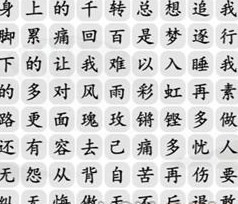 身上的千转总想追我
脚累痛回百是梦逐行
下的让我难以入睡我
的多对风雨彩虹再素
路更面瑰玫锵铿多做
还有容去己痛多忧人
无怨从背自苦再伤要